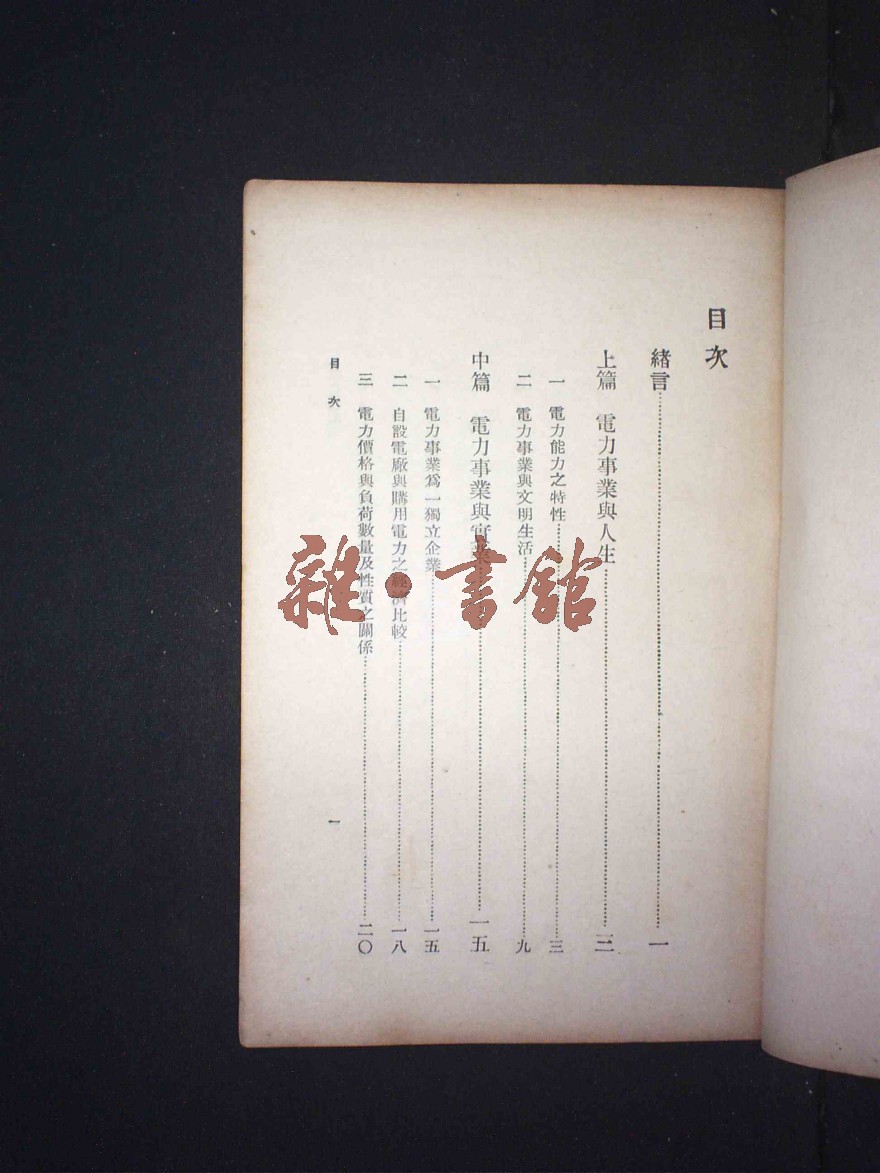 目次
緒言一
上篇 電力事業與人生三
一 電力能力之特性三
二 電力事業與文明生活九
中篇 電力事業與實業一五
一 電力事業爲一獨立企業一五
二 自設電廠與購用電力之經濟比較一八
三 電力價格與負荷數量及性質之關係二〇
目次
一
雜·書館